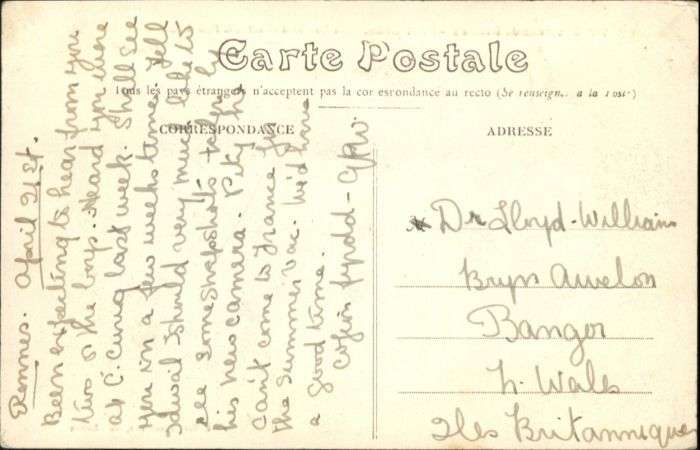 Carte Postale
Tous les pays étrangers n'acceptent pas la correspondance au recto (Se renseigner a la Poste)
CORRESPONDANCE
ADRESSE
Rennes. April 21st.
Been expecting to hear from you
two & the boys. Heard you were
at C. last week. Shall see
you in a few weeks time. Tell
Idwal I should very much like to
see some snapshots taken by
his new camera. Pity he
can't come to France for
the summer vac. We'd have
a good time.
Cofion fyrdd - GRW.
Dr Lloyd-Williams
Bryn Awelon
Bangor
N. Wales
Iles Britanniques